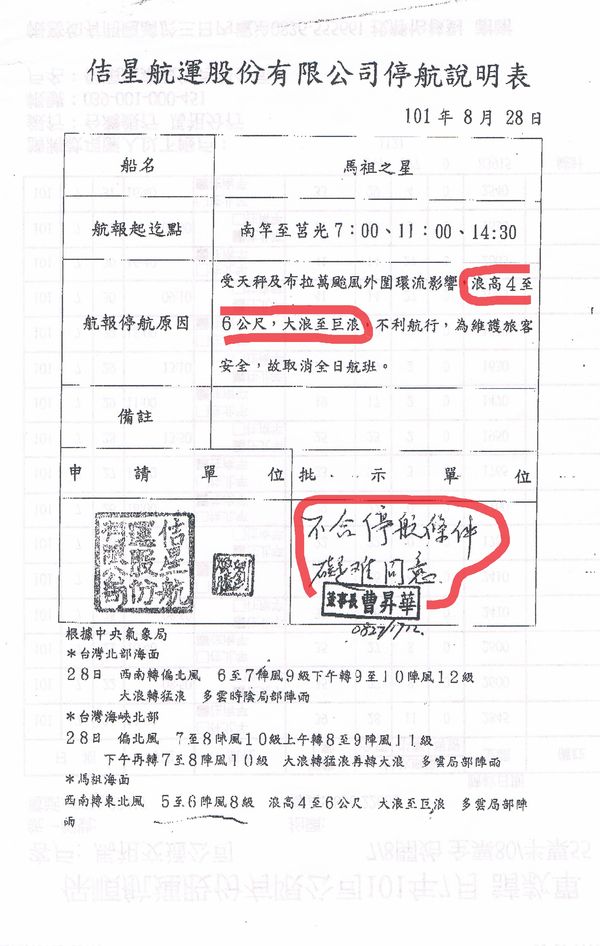 佶星航運股份有限公司停航說明表
101 年 8 月 28 日
船名
馬祖之星
航報起迄點
南竿至莒光 7:00、11:00、14:30
航報停航原因
受天秤及布拉萬颱風外圍環流影響,浪高4至
6公尺,大浪至巨浪,不利航行,為維護旅客
安全,故取消全日航班。
備註
申請單位
批示單位
佶星航
運股份
有限公司
不合停航條件
礙难同意
董事長 曹昇華
根據中央氣象局
*台灣北部海面
28日 西南轉偏北風 6至7陣風9級下午轉9至10陣風12級
大浪轉猛浪 多雲時陰局部陣雨
*台灣海峽北部
28日 偏北風 7至8陣風10級上午轉8至9陣風11級
下午再轉7至8陣風10級 大浪轉猛浪再轉大浪 多雲局部陣雨
*馬祖海面
西南轉東北風 5至6陣風8級 浪高4至6公尺 大浪至巨浪 多雲局部陣
雨